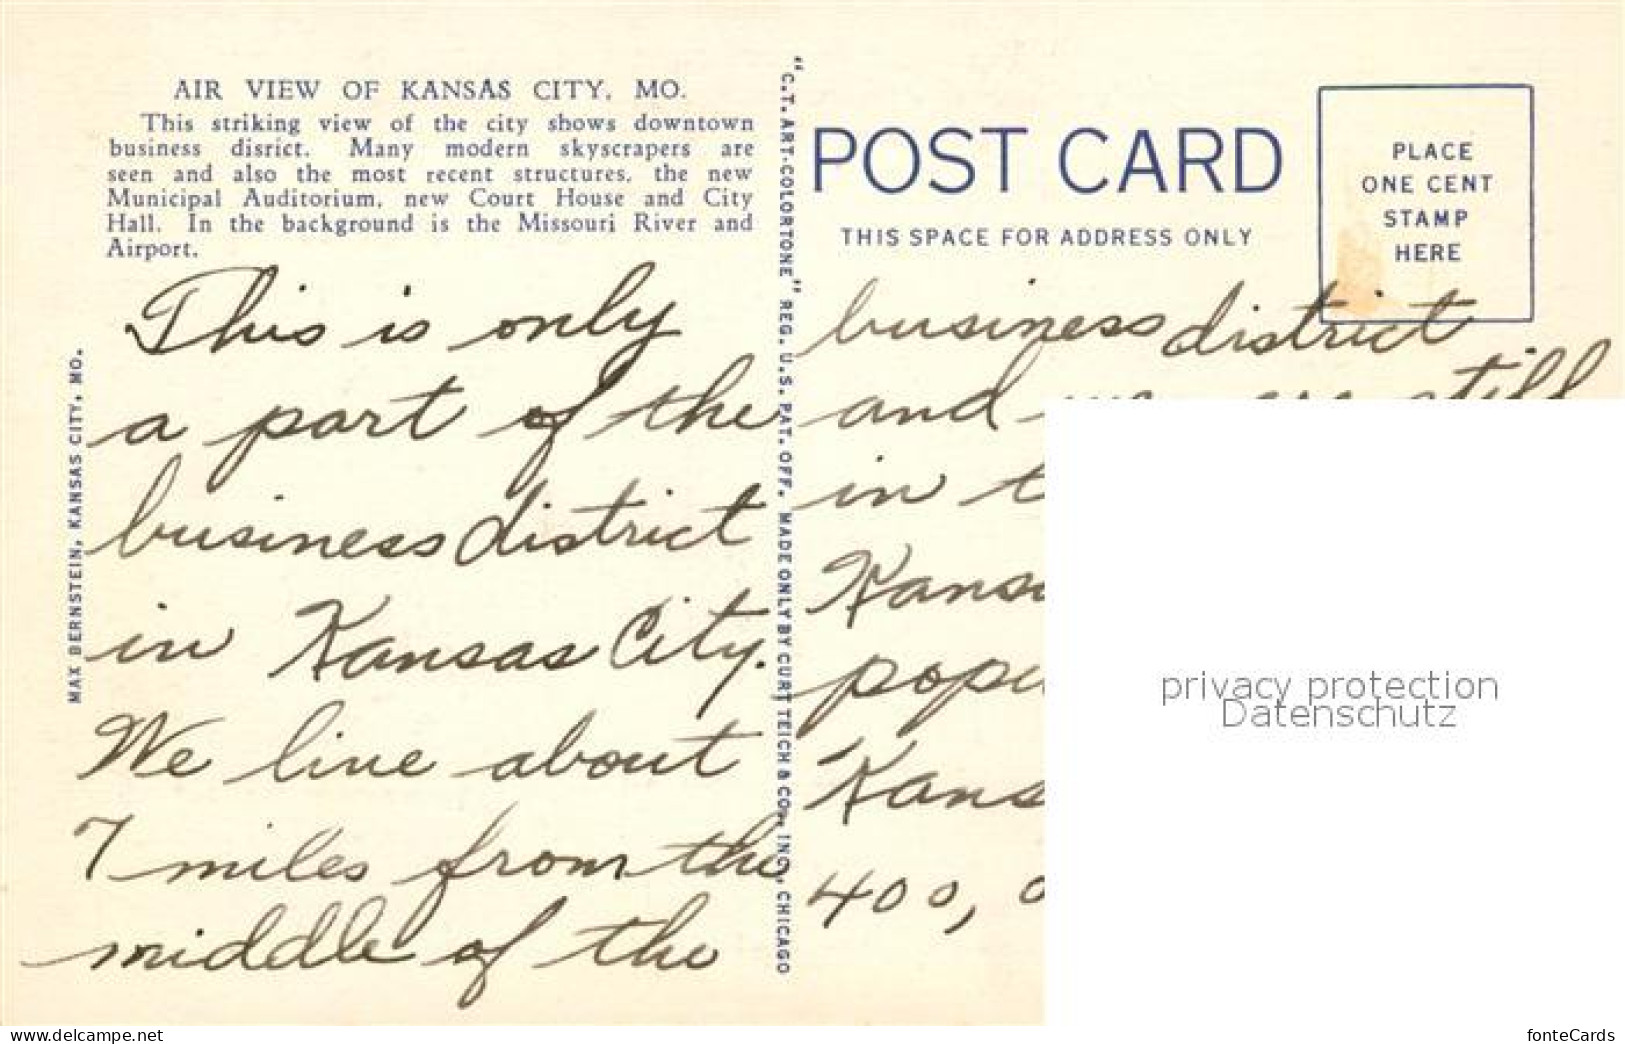 AIR VIEW OF KANSAS CITY, MO.
This striking view of the city shows downtown
business disrict. Many modern skyscrapers are
seen and also the most recent structures, the new
Municipal Auditorium, new Court House and City
Hall. In the background is the Missouri River and
Airport.
This is only
a part of the
business district
in Kansas City.
We live about
7 miles from the
middle of the
MAX BERNSTEIN, KANSAS CITY, MO.
"C.T. ART-COLORTONE" REG. U.S. PAT. OFF. MADE ONLY BY CURT TEICH & CO., INC., CHICAGO
POST CARD
THIS SPACE FOR ADDRESS ONLY
PLACE
ONE CENT
STAMP
HERE
business district
and we are still
in t
Kans
popu
Kans
400, 0
privacy protection
Datenschutz
the-bestofly.delcampe.net
fonteCards